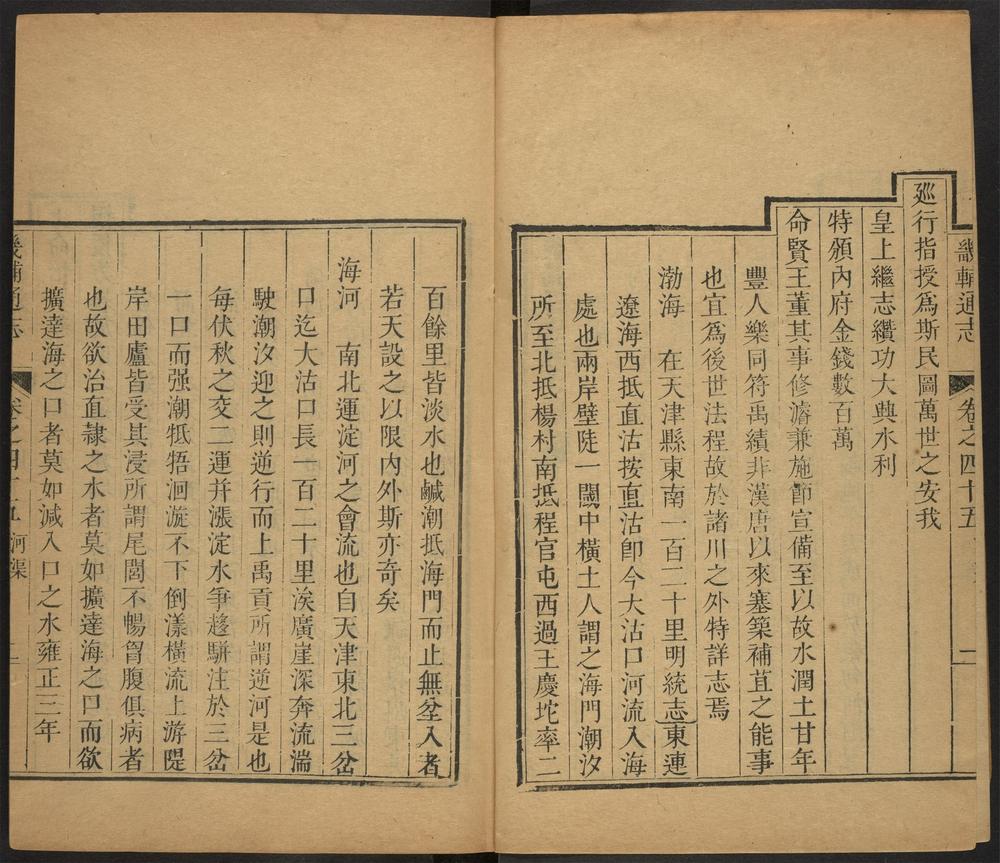 畿輔通志 卷之四十五 二
廵行指授爲斯民圖萬世之安我
皇上繼志纘功大典水利
特頒內府金錢數百萬
命賢王董其事修濬兼施節宣備至以故水潤土甘年
豐人樂同符禹績非漢唐以來塞築補苴之能事
也宜爲後世法程故於諸川之外特詳志焉
渤海 在天津縣東南一百二十里明統志東連
遼海西抵直沽按直沽卽今大沽口河流入海
處也兩岸壁陡一闕中橫土人謂之海門潮汐
所至北抵楊村南抵程官屯西過王慶坨率二
百餘里皆淡水也鹹潮抵海門而止無坌入者
若天設之以限內外斯亦奇矣
海河 南北運淀河之會流也自天津東北三岔
口迄大沽口長一百二十里涘廣崖深奔流湍
駛潮汐迎之則逆行而上禹貢所謂逆河是也
每伏秋之交二運并漲淀水爭趍駢注於三岔
一口而强潮牴牾洄漩不下倒漾橫流上游隄
岸田廬皆受其浸所謂尾閭不暢胷腹俱病者
也故欲治直隷之水者莫如擴達海之口而欲
擴達海之口者莫如減入口之水雍正三年
畿輔通志 卷之四十五 河渠